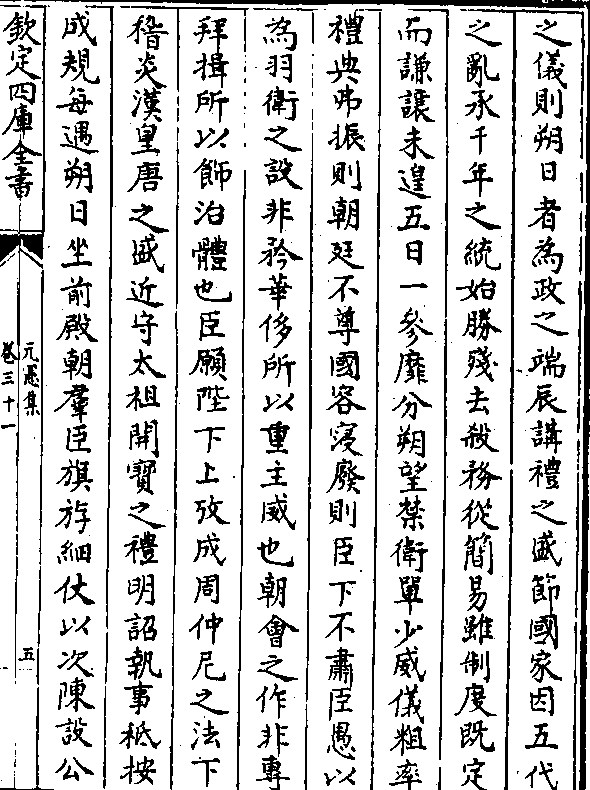 之儀則朔日者為政之端辰講禮之盛節國家因五代
之亂承千年之統始勝殘去殺務從簡易雖制度既定
而謙讓未遑五日一參靡分朔望禁衛單少威儀粗率
禮典弗振則朝廷不尊國容寖廢則臣下不肅臣愚以
為羽衛之設非矜華侈所以重主威也朝會之作非專
拜揖所以飾治體也臣願陛下上攷成周仲尼之法下
稽炎漢皇唐之盛近守太祖開寶之禮明詔執事秪按
成規每遇朔日坐前殿朝羣臣旗斿細仗以次陳設公
欽定四庫全書
元憲集
卷三十一
五